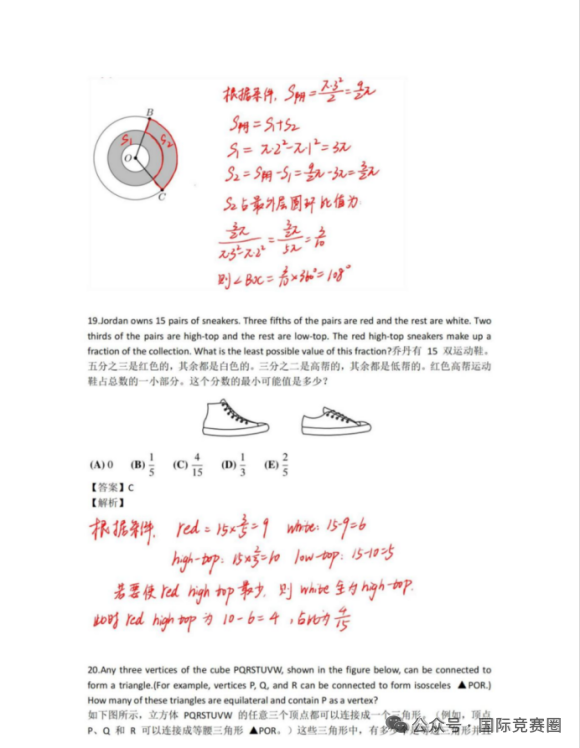 根据条件, S阴 = π·3²/2 = 9/2π
S阴 = S1+S2
S1 = π·2²-π·1² = 3π
S2 = S阴 - S1 = 9/2π - 3π = 3/2π
S2占最外层圆环比值为
3/2π / π·3²-π·2² = 3/2π / 5π = 3/10
则∠BOC = 3/10 × 360° = 108°
B
S1
S2
O
C
19.Jordan owns 15 pairs of sneakers. Three fifths of the pairs are red and the rest are white. Two
thirds of the pairs are high-top and the rest are low-top. The red high-top sneakers make up a
fraction of the collection. What is the least possible value of this fraction?乔丹有 15 双运动鞋。
五分之三是红色的，其余都是白色的。三分之二是高帮的，其余都是低帮的。红色高帮运动
鞋占总数的一小部分。这个分数的最小可能值是多少？
(A) 0 (B) 1/5 (C) 4/15 (D) 1/3 (E) 2/5
【答案】C
【解析】
根据条件, red = 15×3/5 = 9 white: 15-9=6
high-top: 15×2/3=10 low-top: 15-10=5
若要使 red high top 最少, 则 white 全为 high-top.
此时 red high top 为 10-6=4 , 占比为 4/15
20.Any three vertices of the cube PQRSTUVW, shown in the figure below, can be connected to
form a triangle.(For example, vertices P, Q, and R can be connected to form isosceles ▲PQR.)
How many of these triangles are equilateral and contain P as a vertex?
如下图所示，立方体 PQRSTUVW 的任意三个顶点都可以连接成一个三角形。（例如，顶点
P、Q 和 R 可以连接成等腰三角形 ▲PQR。）这些三角形中，有多少
公众号 · 国际竞赛圈